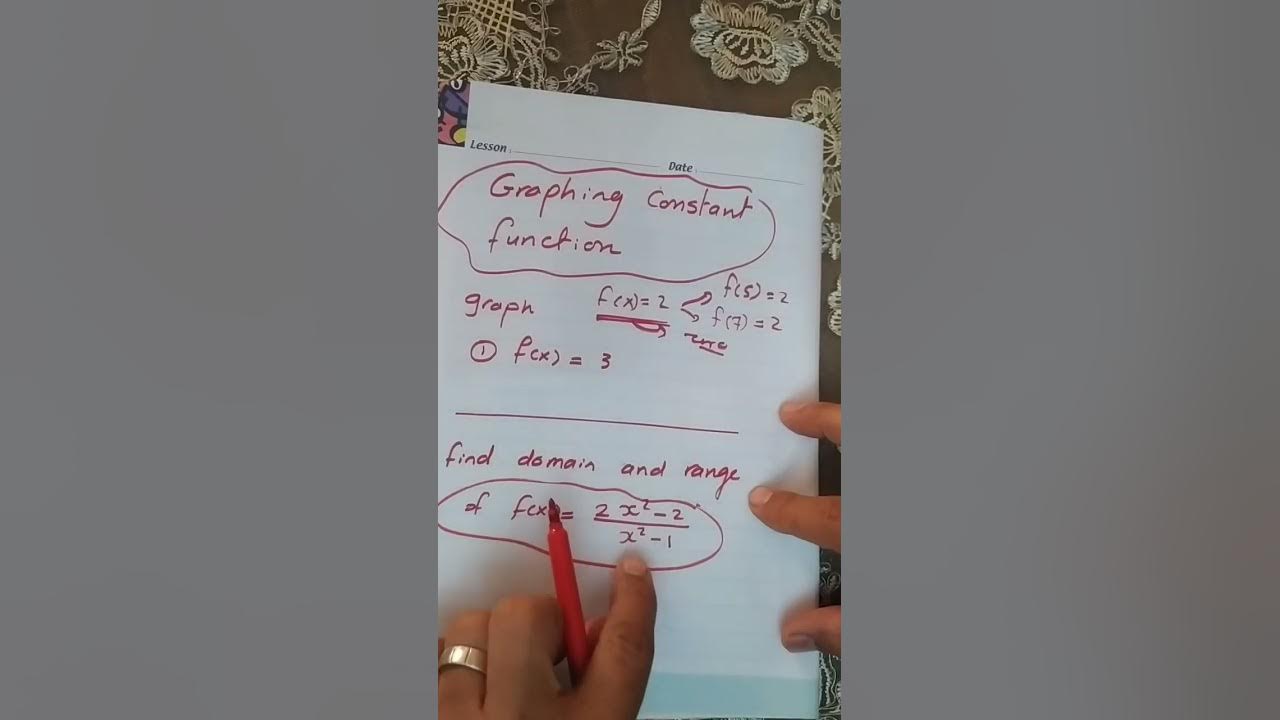 Lesson Date
Graphing Constant
function
graph f(x) = 2 f(5) = 2
f(7) = 2
① f(x) = 3
find domain and range
of f(x) = 2x²-2
x²-1